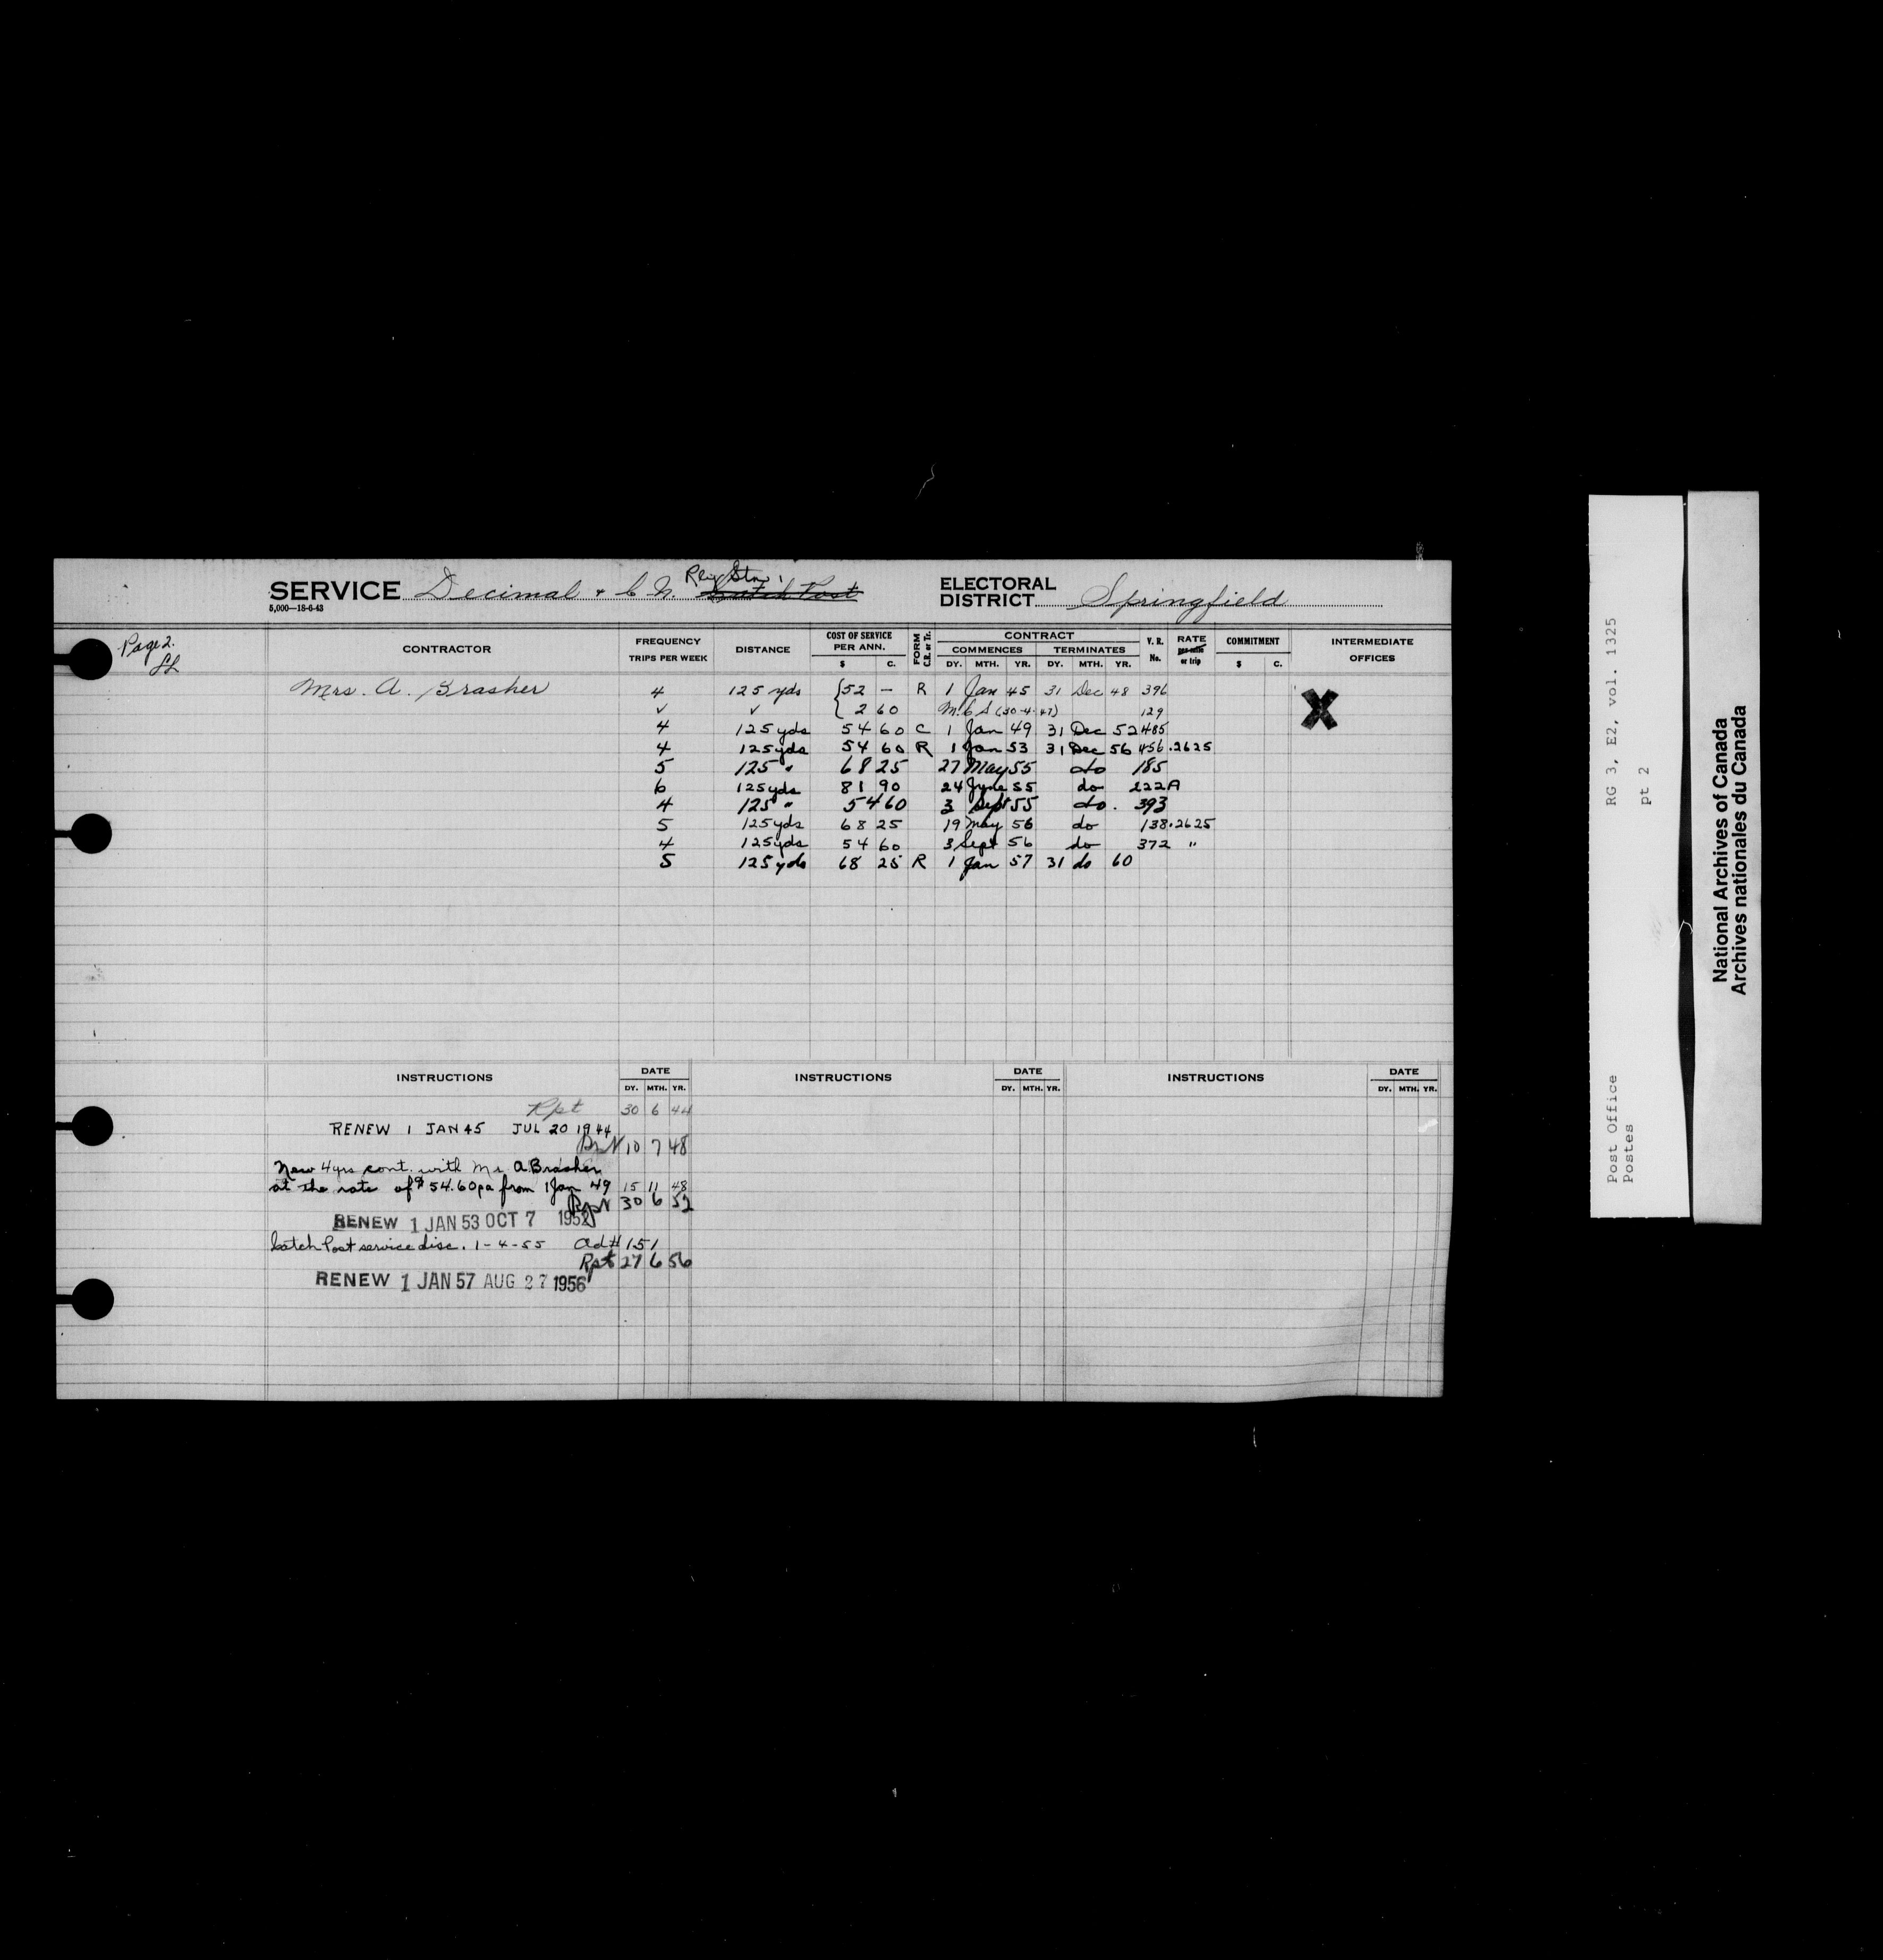 SERVICE Decimal & C.N. Rly Stn. Catch Post
5,000—18-6-43
ELECTORAL DISTRICT Springfield
Page 2.
CONTRACTOR FREQUENCY TRIPS PER WEEK DISTANCE COST OF SERVICE PER ANN. $ C. FORM C.R. or Tr. CONTRACT COMMENCES DY. MTH. YR. TERMINATES DY. MTH. YR. V. R. No. RATE per mile or trip COMMITMENT $ C. INTERMEDIATE OFFICES
Mrs. A. Brasher 4 125 yds 52 — R 1 Jan 45 31 Dec 48 396 X
✓ ✓ 2 60 M.C.S (30-4-47) 129
4 125 yds 54 60 C 1 Jan 49 31 Dec 52 485
4 125 yds 54 60 R 1 Jan 53 31 Dec 56 456 .2625
5 125 " 68 25 27 May 55 do 185
6 125 yds 81 90 24 June 55 do 222A
4 125 " 54 60 3 Sept 55 do. 393
5 125 yds 68 25 19 May 56 do 138 .2625
4 125 yds 54 60 3 Sept 56 do 372 "
5 125 yds 68 25 R 1 Jan 57 31 do 60
INSTRUCTIONS DATE DY. MTH. YR. INSTRUCTIONS DATE DY. MTH. YR. INSTRUCTIONS DATE DY. MTH. YR.
Rpt 30 6 44
RENEW 1 JAN 45 JUL 20 1944
10 7 48
New 4 yrs cont. with Mrs A Brasher
at the rate of $54.60 pa from 1 Jan 49 15 11 48
30 6 52
RENEW 1 JAN 53 OCT 7 1952
Catch Post service disc. 1-4-55 Ad # 151
Rpt 27 6 56
RENEW 1 JAN 57 AUG 27 1956
RG 3, E2, vol. 1325
pt 2
Post Office
Postes
National Archives of Canada
Archives nationales du Canada